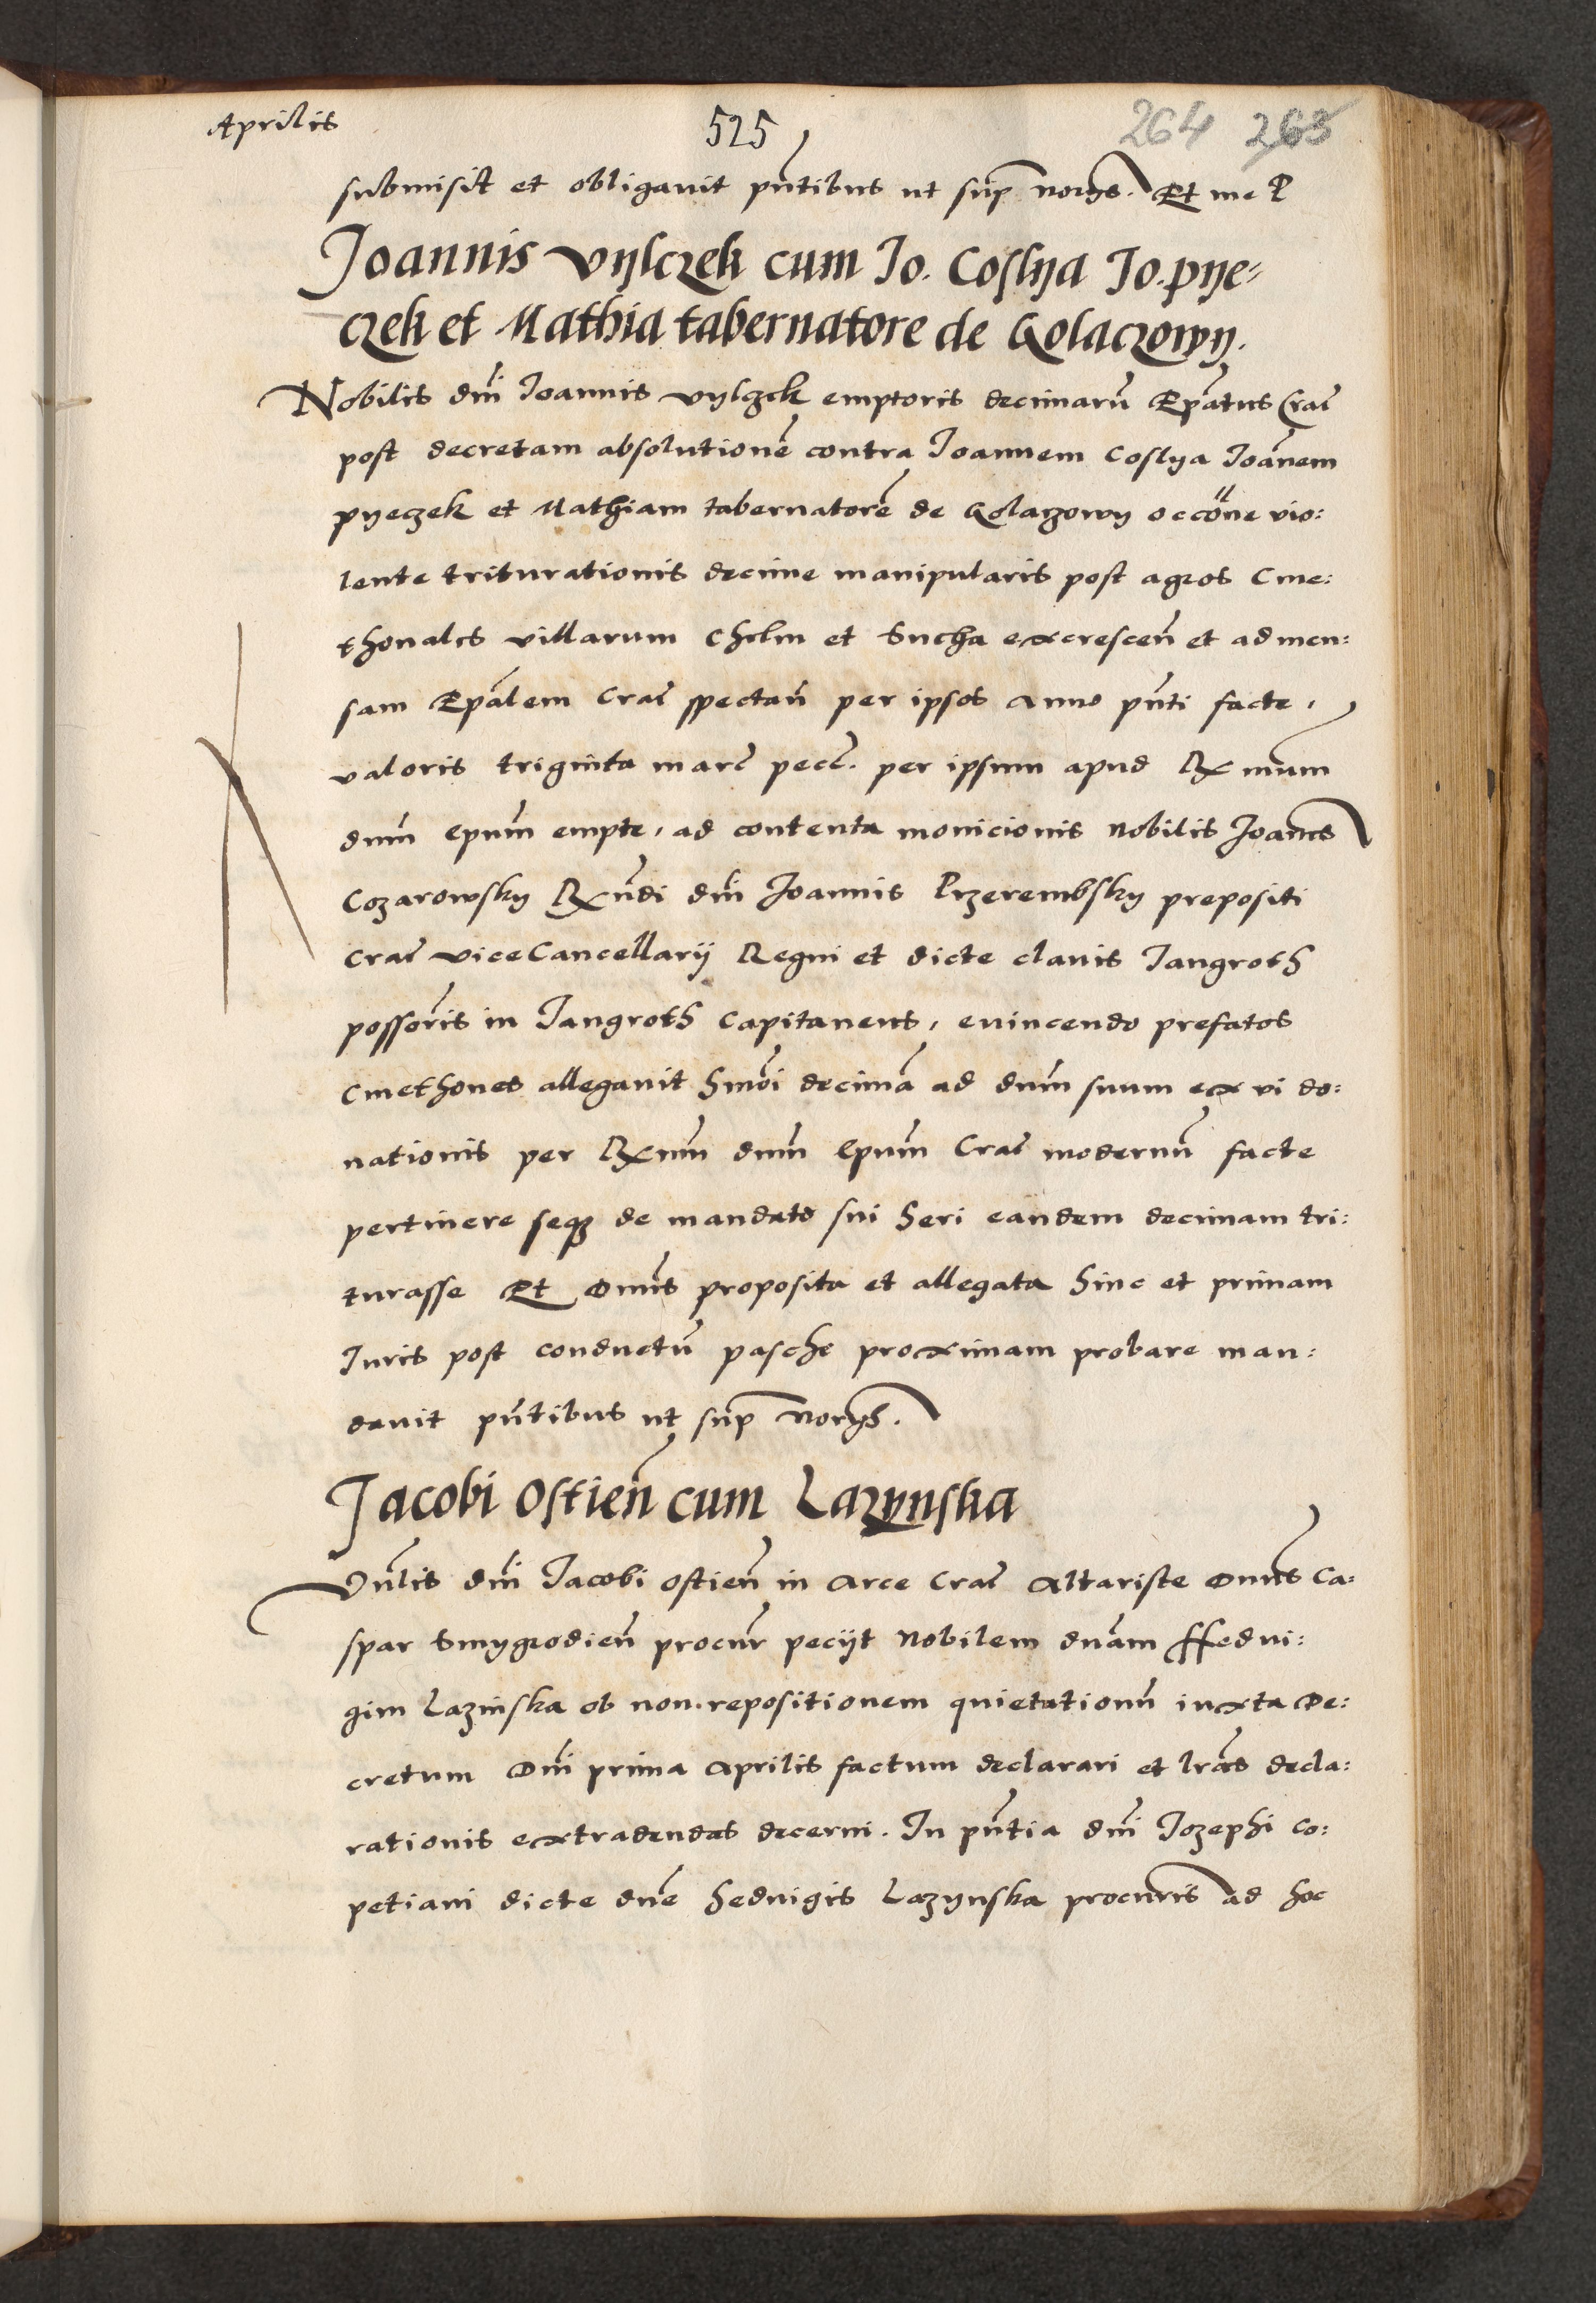 Aprilis 525 264 263
submisit et obligavit pñtibus ut sup norijs. Et me P
Joannis Vylczek cum Jo. Coslya Jo. pye=
czek et Mathia tabernatore de Golaczowy.
Nobilis dni Joannis vylczek emptoris decimarũ Epatus Crač
post decretam absolutionẽ contra Joannem Coslya Joanem
pyeczek et Mathiam tabernatorẽ de Golaczowy occone vio:
lente triturationis decime manipularis post agros Cme:
thonales villarum Chelm et Sucha excresceñ et ad men:
sam Epalem Crač spectañ per ipsos Anno pñti facte,
valoris triginta marč pecč. per ipsum apud Rxmum
dnum Epum empte, ad contenta monicionis Nobilis Joañes
Cozarowsky Rxndi dni Joannis Przerembsky prepositi
Crač viceCancellarij Regni et dicte clavis Jangroth
possoris in Jangroth Capitaneus, evincendo prefatos
Cmethones allegavit hmoi decimã ad dnum suum ex vi do:
nationis per Rxmum dnum Epum Crač modernũ facte
pertinere seqz de mandato sui heri eandem decimam tri:
turasse Et Dnus proposita et allegata hinc et primam
Juris post conductũ pasche proximam probare man:
davit pñtibus ut sup norijs.
Jacobi Ostieñ cum Lazynska
Vnlis dni Jacobi ostieñ in Arce Crač Altariste Dnus Ca:
spar Smygrodieñ procur pecijt Nobilem dnam Hedvi:
gim Lazinska ob non repositionem quietationũ iuxta De:
cretum Dni prima Aprilis factum declarari et lras decla:
rationis extradendas decerni. In pñtia dni Jozephi Co:
petiani dicte dne Hedvigis Lazynska procuris ad hoc